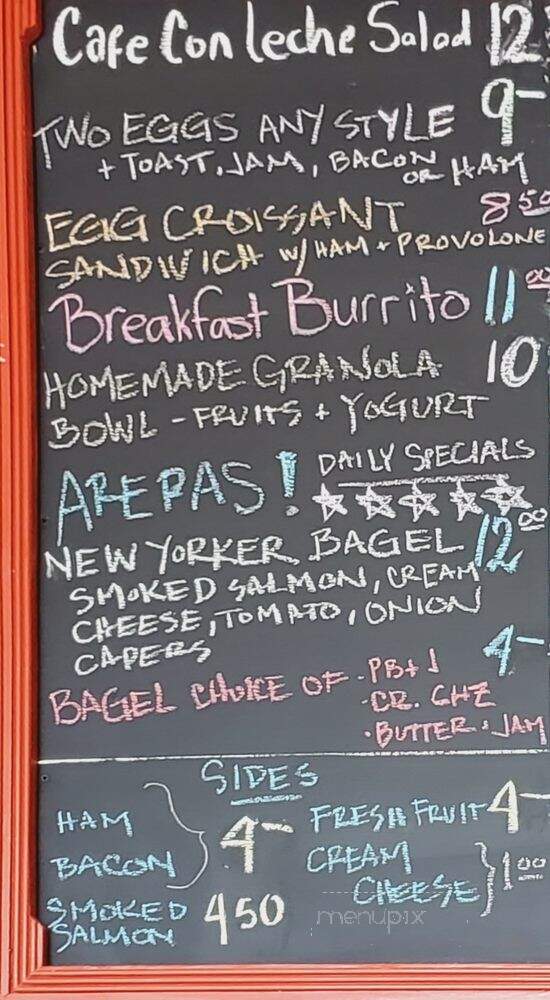 Cafe Con Leche Salad 12
TWO EGGS ANY STYLE 9-
+ TOAST, JAM, BACON OR HAM
EGG CROISSANT 8 50
SANDWICH W/ HAM + PROVOLONE
Breakfast Burrito 11 00
HOMEMADE GRANOLA 10
BOWL - FRUITS + YOGURT
AREPAS! DAILY SPECIALS
NEW YORKER BAGEL 12 00
SMOKED SALMON, CREAM
CHEESE, TOMATO, ONION
CAPERS
BAGEL CHOICE OF · PB+J 4-
· CR. CHZ
· BUTTER · JAM
SIDES
HAM
BACON 4-
SMOKED
SALMON 4 50
FRESH FRUIT 4-
CREAM
CHEESE 1 00
menupix